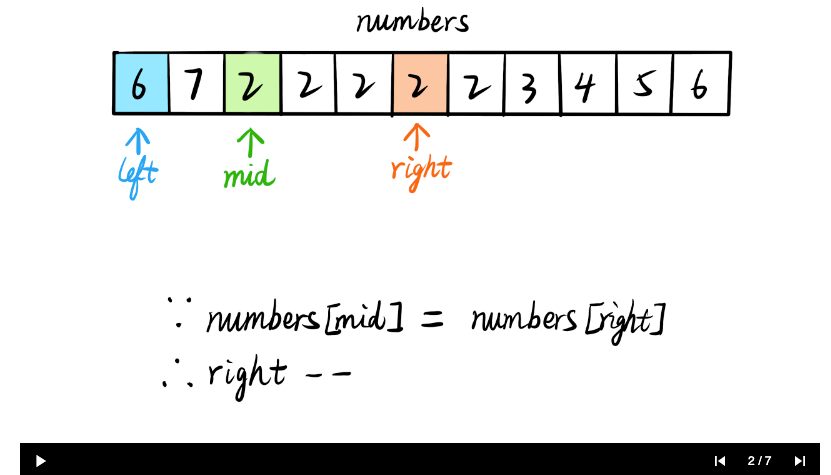 numbers
6 7 2 2 2 2 2 3 4 5 6
left mid right
∵ numbers[mid] = numbers[right]
∴ right --
2 / 7